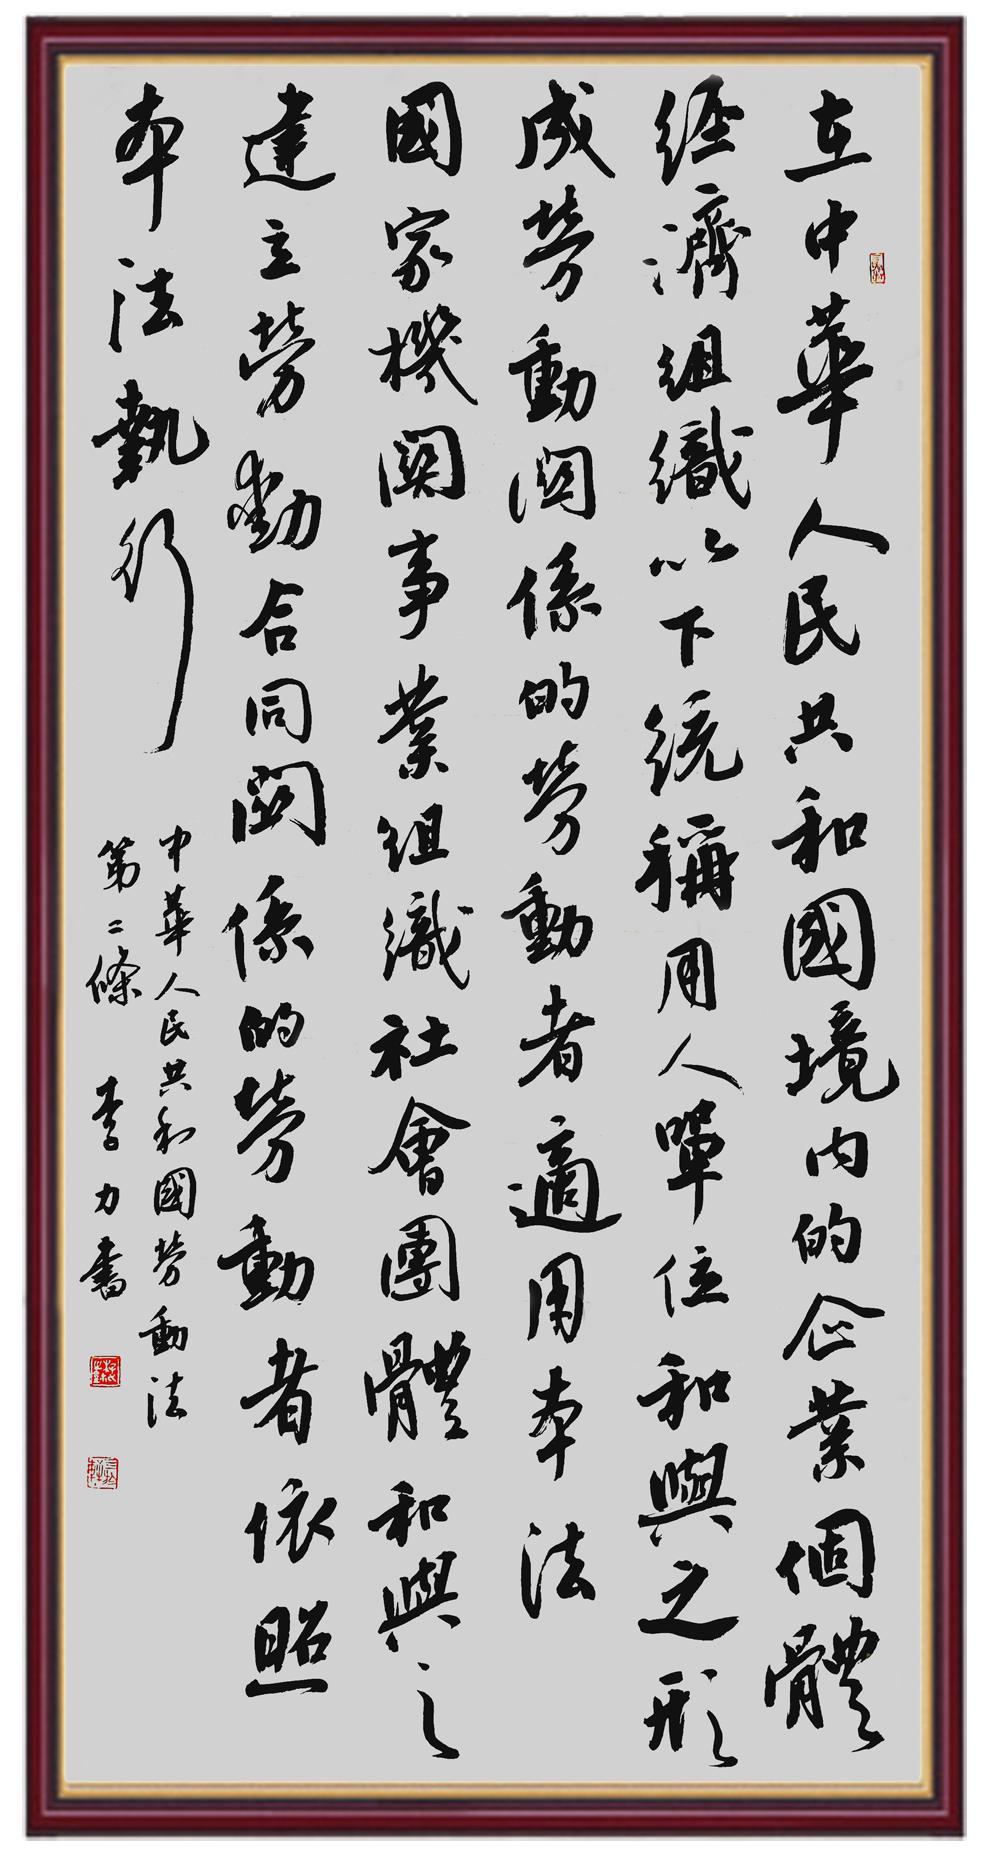 在中華人民共和國境内的企業個體
經濟組織以下统稱用人單位和與之形
成勞動関係的勞動者適用本法
國家機関事業組織社會團體和與之
建立勞動合同関係的勞動者依照
本法執行
中華人民共和國勞動法
第二條 李力書